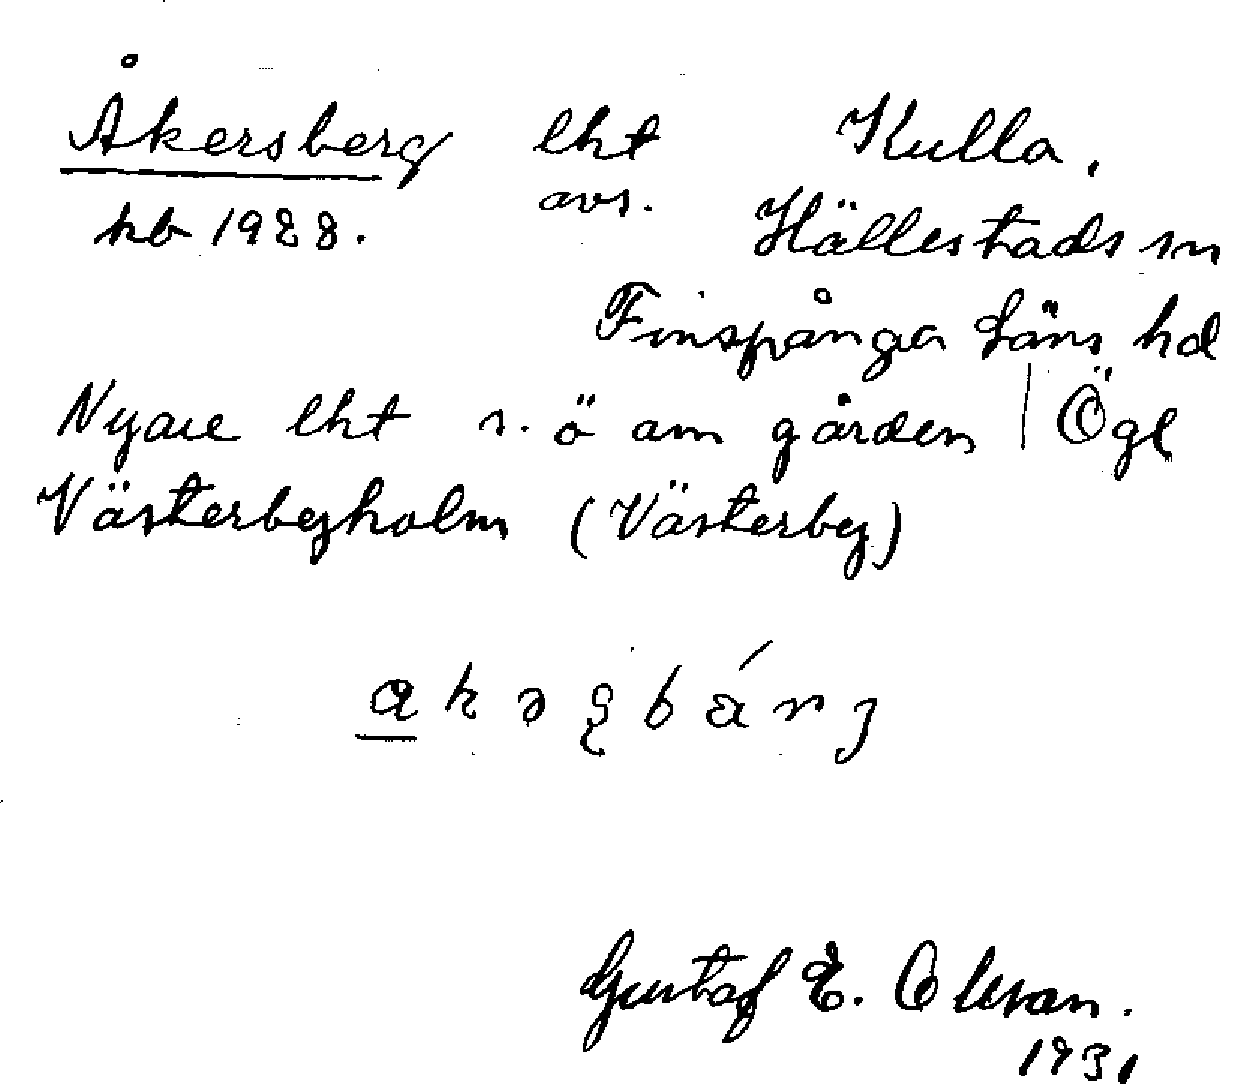 Åkersberg lht Kulla,
kb 1928. avs. Hällestads sn
Finspånga läns hd
Nyare lht s. ö om gården | Ögl
Västerbyholm (Västerby)
Gustaf E. Olsson.
1931